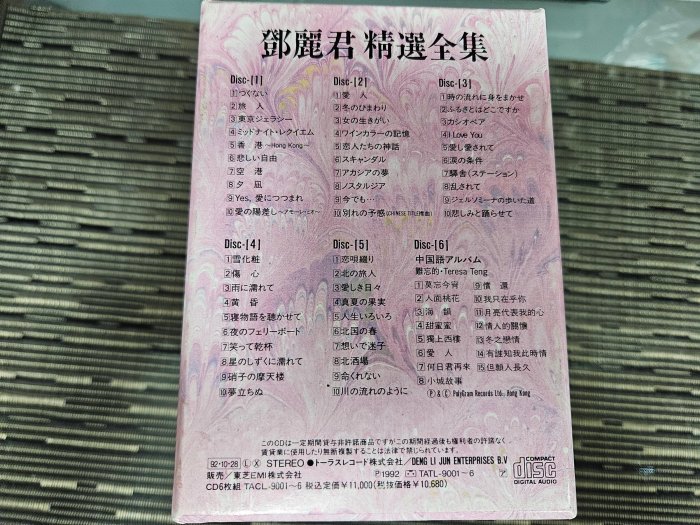 鄧麗君 精選全集
Disc-[1]
1つぐない
2旅人
3東京ジェラシー
4ミッドナイト・レクイエム
5香港〜Hong Kong〜
6悲しい自由
7空港
8夕凪
9Yes, 愛につつまれ
10愛の陽差し〜アモーレ・ミオ〜
Disc-[2]
1愛人
2冬のひまわり
3女の生きがい
4ワインカラーの記憶
5恋人たちの神話
6スキャンダル
7アカシアの夢
8ノスタルジア
9今でも…
10別れの予感(CHINESE TITLE惟曲)
Disc-[3]
1時の流れに身をまかせ
2ふるさとはどこですか
3カシオペア
4I Love You
5愛し愛されて
6涙の条件
7驛舎(ステーション)
8乱されて
9ジェルソミーナの歩いた道
10悲しみと踊らせて
Disc-[4]
1雪化粧
2傷心
3雨に濡れて
4黄昏
5寝物語を聴かせて
6夜のフェリーボート
7笑って乾杯
8星のしずくに濡れて
9硝子の摩天楼
10夢立ちぬ
Disc-[5]
1恋唄綴り
2北の旅人
3愛しき日々
4真夏の果実
5人生いろいろ
6北国の春
7想いで迷子
8北酒場
9命くれない
10川の流れのように
Disc-[6]
中国語アルバム
難忘的・Teresa Teng
1莫忘今宵
2人面桃花
3海韻
4甜蜜蜜
5獨上西樓
6愛人
7何日君再來
8小城故事
9償還
10我只在乎你
11月亮代表我的心
12情人的關懷
13冬之戀情
14有誰知我此時情
15但願人長久
Ⓟ & Ⓒ PolyGram Records Ltd., Hong Kong
このCDは一定期間貸与非許諾商品ですがこの期間経過後も権利者の許諾なく、
賃貸業に使用したり無断複製することは法律で禁じられています。
92・10・28 Ⓛ Ⓧ STEREO ●トーラスレコード株式会社/DENG LI JUN ENTERPRISES B.V
販売/東芝EMI株式会社 Ⓟ1992 TATL-9001〜6 ア
CD6枚組 TACL-9001〜6 税込定価¥11,000(税抜価格¥10,680)
COMPACT
disc
DIGITAL AUDIO